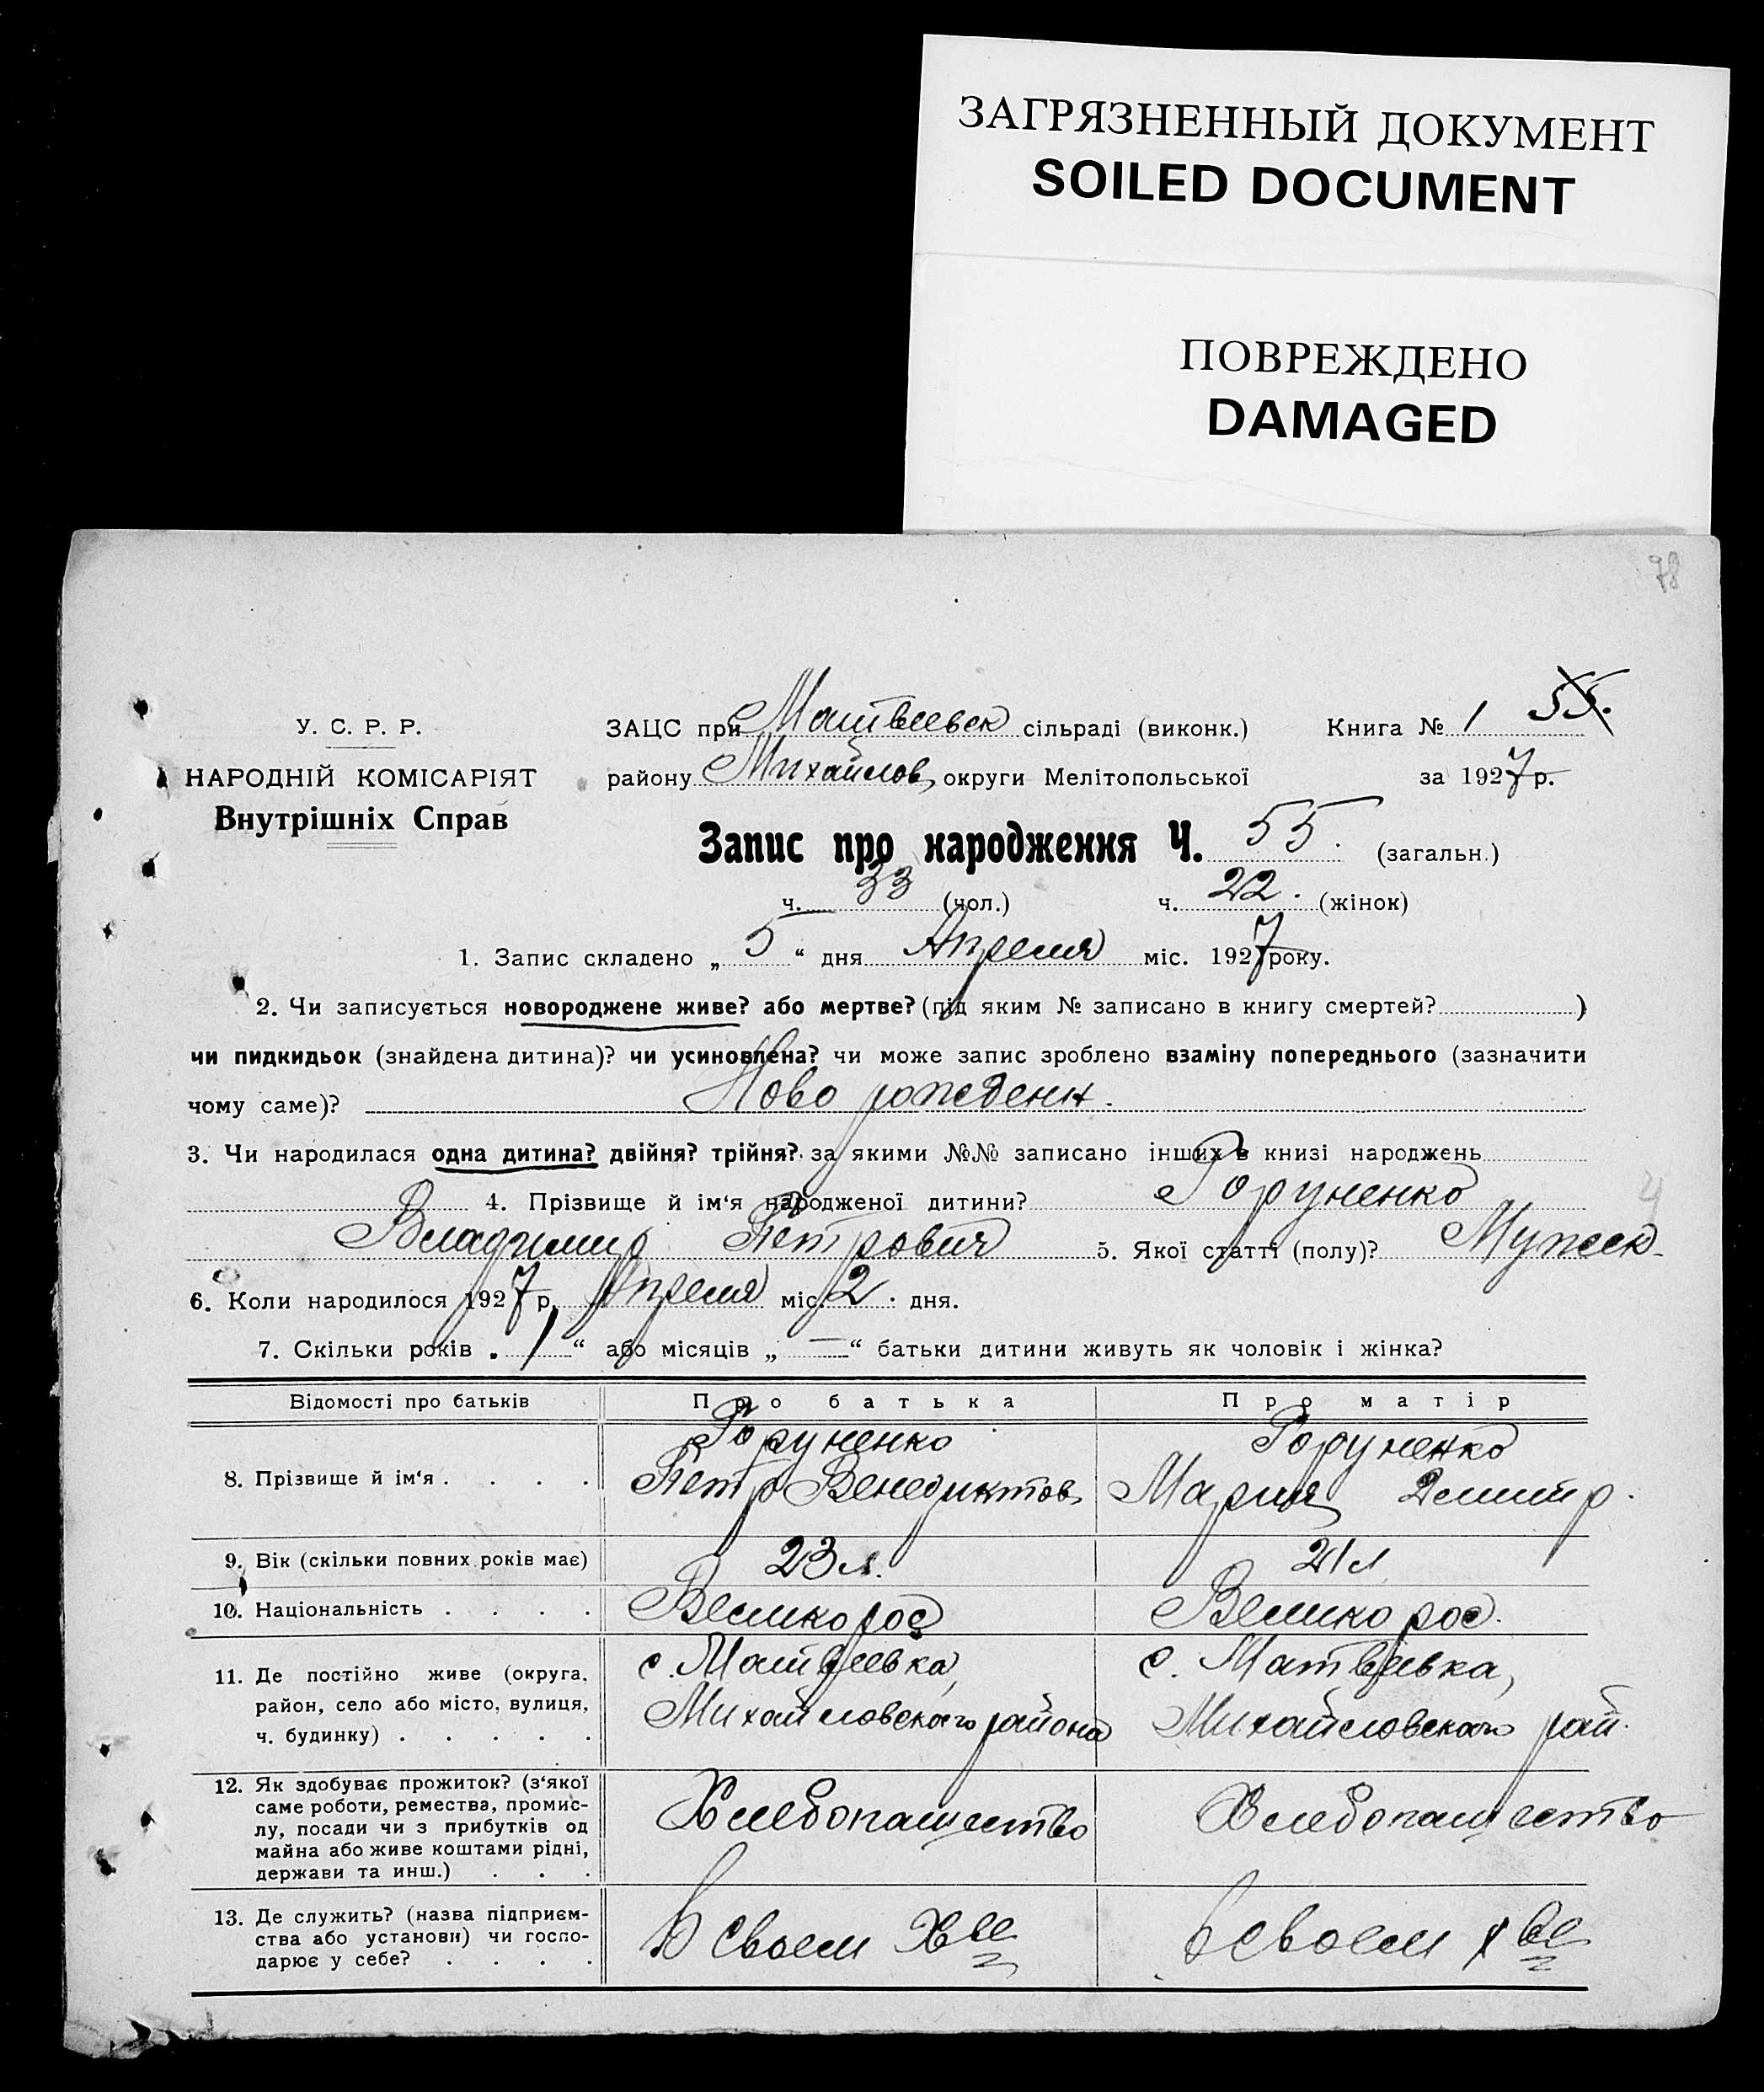 ЗАГРЯЗНЕННЫЙ ДОКУМЕНТ
SOILED DOCUMENT
ПОВРЕЖДЕНО
DAMAGED
78
55.
У. С. Р. Р.
НАРОДНІЙ КОМІСАРІЯТ
Внутрішніх Справ
ЗАЦС при Матвеевск сільраді (виконк.) Книга № 1
району Михайлов. округи Мелітопольської за 1927 р.
Запис про народження Ч. 55. (загальн.)
ч. 33 (чол.) ч. 22. (жінок)
1. Запис складено „ 5 “ дня Апреля міс. 1927 року.
2. Чи записується новороджене живе? або мертве? (під яким № записано в книгу смертей? )
чи пидкидьок (знайдена дитина)? чи усиновлена? чи може запис зроблено взаміну попереднього (зазначити
чому саме)? Ново рожденн.
3. Чи народилася одна дитина? двійня? трійня? за якими №№ записано інших в книзі народжень
4. Прізвище й ім‘я народженої дитини? Горуненко
Владимир Петрович 5. Якої статті (полу)? Мужск.
6. Коли народилося 1927 р. Апреля міс. 2. дня.
7. Скільки років „ 1 “ або місяців „ — “ батьки дитини живуть як чоловік і жінка?
Відомості про батьків Про батька Про матір
8. Прізвище й ім‘я . . . . Горуненко Петр Венедиктов. Горуненко Мария Дмитр.
9. Вік (скільки повних років має) 23 л. 21 л
10. Національність . . . . Великорос Великорос.
11. Де постійно живе (округа, с. Матвеевка, с. Матвеевка,
район, село або місто, вулиця, Михайловского района Михайловского рай.
ч. будинку) . . . . .
12. Як здобуває прожиток? (з‘якої
саме роботи, ремества, промис-
лу, посади чи з прибутків од Хлебопашество Хлебопашество
майна або живе коштами рідні,
держави та инш.) . . .
13. Де служить? (назва підприєм-
ства або установи) чи госпо- В своем Хве в своем хве
дарює у себе? . . . .